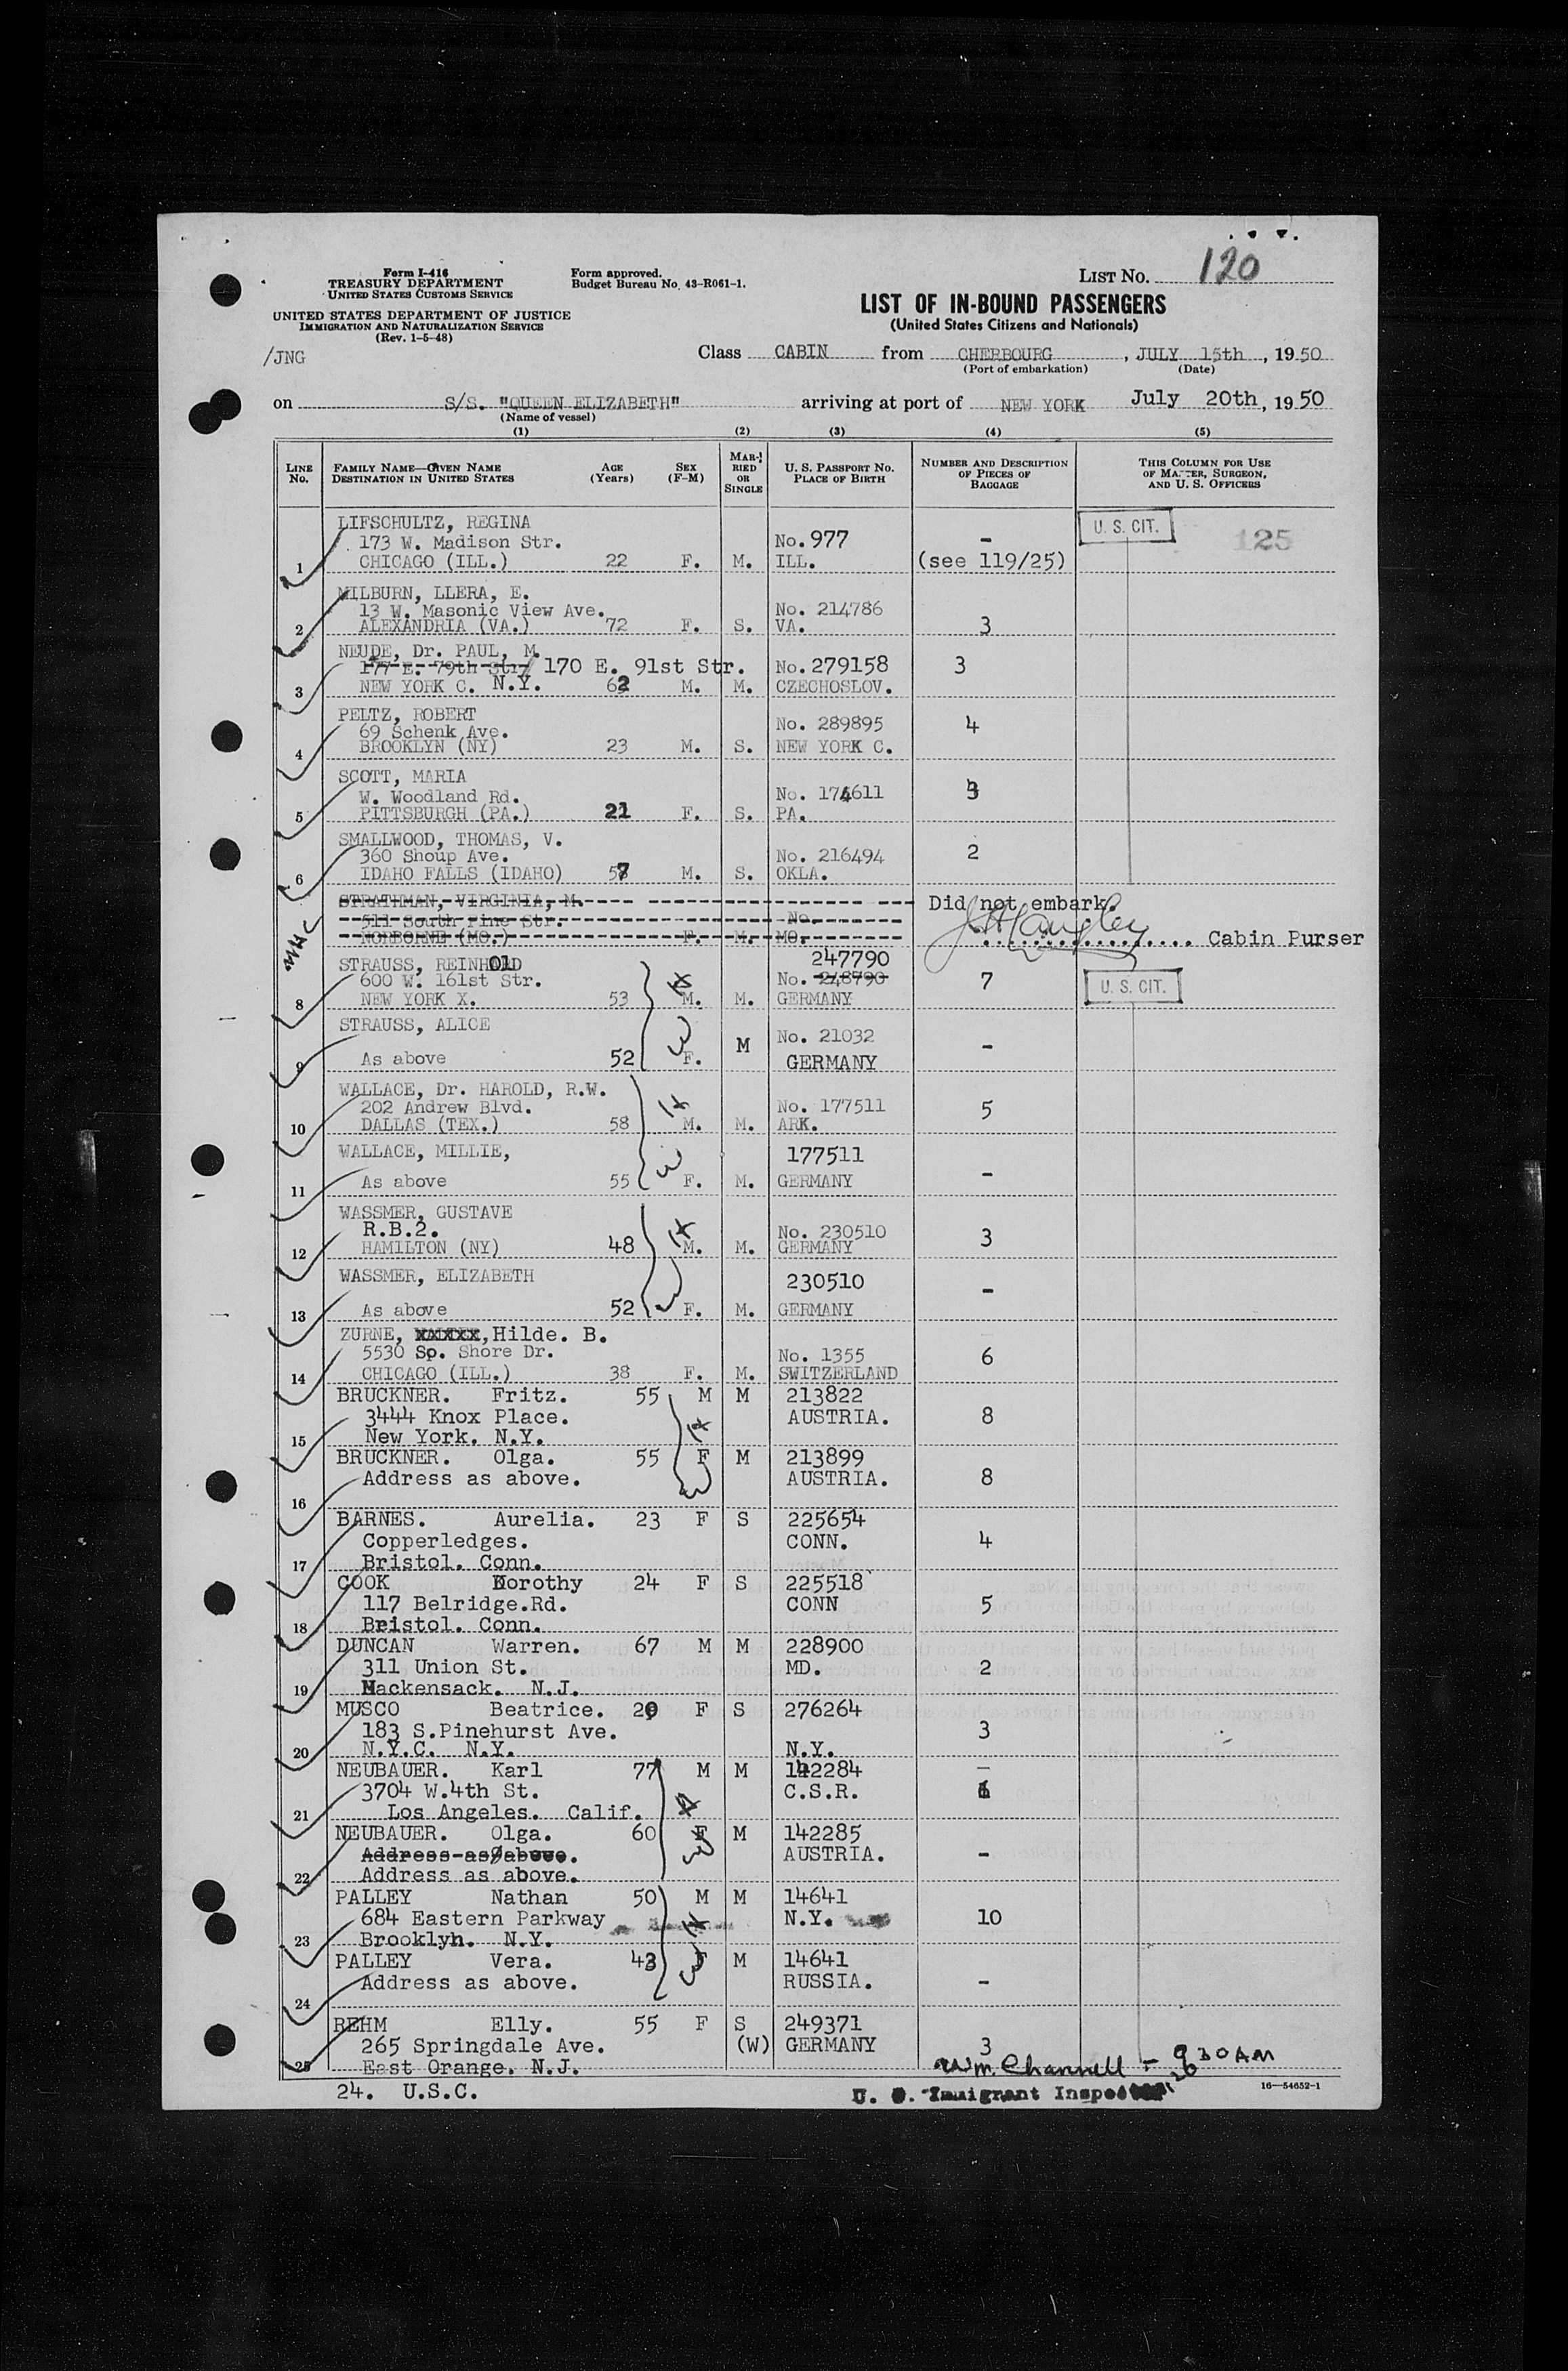 Form I-416
TREASURY DEPARTMENT
UNITED STATES CUSTOMS SERVICE
UNITED STATES DEPARTMENT OF JUSTICE
IMMIGRATION AND NATURALIZATION SERVICE
(Rev. 1-5-48)
/JNG
Form approved.
Budget Bureau No. 43-R061-1.
LIST No. 120
LIST OF IN-BOUND PASSENGERS
(United States Citizens and Nationals)
Class CABIN from CHERBOURG, JULY 15th, 1950
(Port of embarkation) (Date)
on S/S. "QUEEN ELIZABETH" arriving at port of NEW YORK July 20th, 1950
(Name of vessel)
(1) (2) (3) (4) (5)
LINE No. FAMILY NAME—GIVEN NAME DESTINATION IN UNITED STATES AGE (Years) SEX (F-M) MARRIED OR SINGLE U. S. PASSPORT No. PLACE OF BIRTH NUMBER AND DESCRIPTION OF PIECES OF BAGGAGE THIS COLUMN FOR USE OF MASTER, SURGEON, AND U. S. OFFICERS
LIFSCHULTZ, REGINA U. S. CIT. 125
173 W. Madison Str. No. 977 -
1 CHICAGO (ILL.) 22 F. M. ILL. (see 119/25)
MILBURN, LLERA, E.
13 W. Masonic View Ave. No. 214786
2 ALEXANDRIA (VA.) 72 F. S. VA. 3
NEUDE, Dr. PAUL, M.
177 E. 79th Str. 170 E. 91st Str. No. 279158 3
3 NEW YORK C. N.Y. 62 M. M. CZECHOSLOV.
PELTZ, ROBERT
69 Schenk Ave. No. 289895 4
4 BROOKLYN (NY) 23 M. S. NEW YORK C.
SCOTT, MARIA
W. Woodland Rd. No. 174611
5 PITTSBURGH (PA.) 21 F. S. PA.
SMALLWOOD, THOMAS, V.
360 Shoup Ave. No. 216494 2
6 IDAHO FALLS (IDAHO) 57 M. S. OKLA.
STRATHMAN, VIRGINIA, M. Did not embark.
511 South Pine Str. No.
NORBORNE (MO.) F. M. MO. JH Langley Cabin Purser
STRAUSS, REINHOLD 247790
600 W. 161st Str. No. 248790 7 U. S. CIT.
8 NEW YORK X. 53 M. M. GERMANY
STRAUSS, ALICE M No. 21032 -
9 As above 52 F. GERMANY
WALLACE, Dr. HAROLD, R.W.
202 Andrew Blvd. No. 177511 5
10 DALLAS (TEX.) 58 M. M. ARK.
WALLACE, MILLIE, 177511 -
11 As above 55 F. M. GERMANY
WASSMER, GUSTAVE
R.B.2. No. 230510 3
12 HAMILTON (NY) 48 M. M. GERMANY
WASSMER, ELIZABETH 230510 -
13 As above 52 F. M. GERMANY
ZURNE, Hilde. B.
5530 So. Shore Dr. No. 1355 6
14 CHICAGO (ILL.) 38 F. M. SWITZERLAND
BRUCKNER. Fritz. 55 M M 213822
3444 Knox Place. AUSTRIA. 8
15 New York. N.Y.
BRUCKNER. Olga. 55 F M 213899
Address as above. AUSTRIA. 8
16
BARNES. Aurelia. 23 F S 225654
Copperledges. CONN. 4
17 Bristol. Conn.
COOK Dorothy 24 F S 225518
117 Belridge.Rd. CONN 5
18 Bristol. Conn.
DUNCAN Warren. 67 M M 228900
311 Union St. MD. 2
19 Hackensack. N.J.
MUSCO Beatrice. F S 276264
183 S.Pinehurst Ave. 3
20 N.Y.C. N.Y. N.Y.
NEUBAUER. Karl 77 M M 142284
3704 W.4th St. C.S.R.
21 Los Angeles. Calif.
NEUBAUER. Olga. 60 F M 142285
Address as above. AUSTRIA. -
22 Address as above.
PALLEY Nathan 50 M M 14641
684 Eastern Parkway N.Y. 10
23 Brooklyn. N.Y.
PALLEY Vera. 43 F M 14641
Address as above. RUSSIA. -
24
REHM Elly. 55 F S 249371
265 Springdale Ave. (W) GERMANY 3
25 East Orange. N.J.
Wm. Channell - 930AM
24. U.S.C. U. S. Immigrant Inspector 16—54652-1